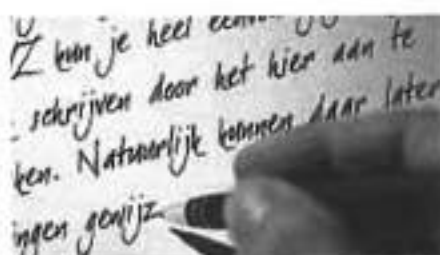 Z kun je heel
schrijven door het hier aan te
ken. Natuurlijk kunnen daar later
ingen gewijz